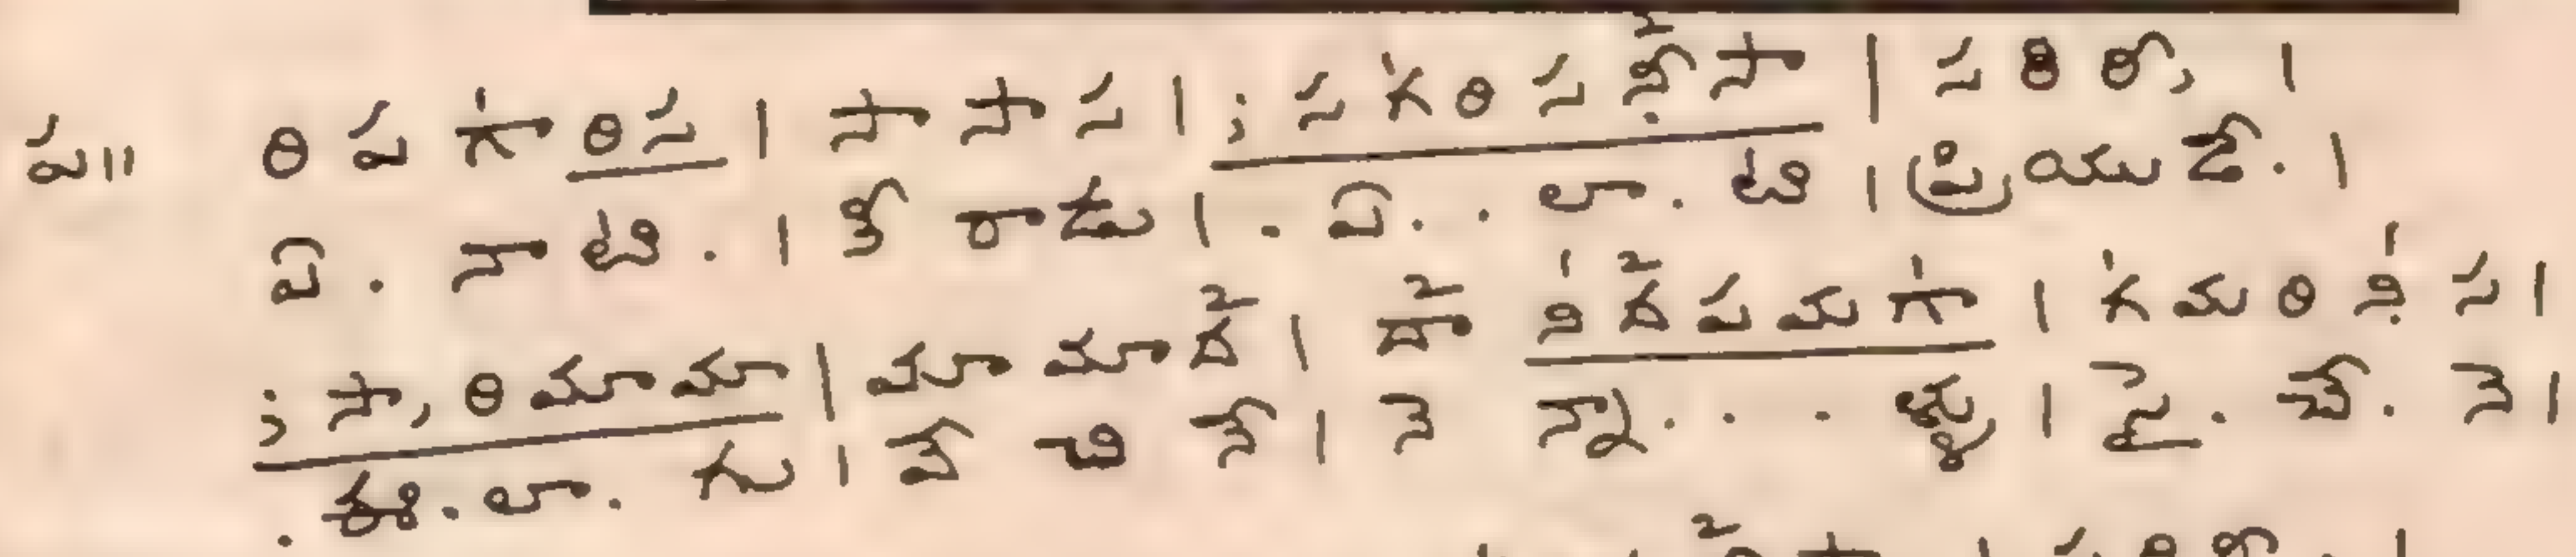 ప॥ రి ప గా రి స | సా సా స | ; స గ రి స నీ సా | స రి రీ, |
ఏ . నా టి . | కీ రాడు | . ఏ . . లా . టి | ప్రియుడే . |
; సా, రి మా మా | మా మా ద | దా ని ద ప మ గా | గ మ రి ని స |
. ఈ . లా . గు | వే చి నే | నె న్నా . . . ళ్ళు | పై . చే . నె |